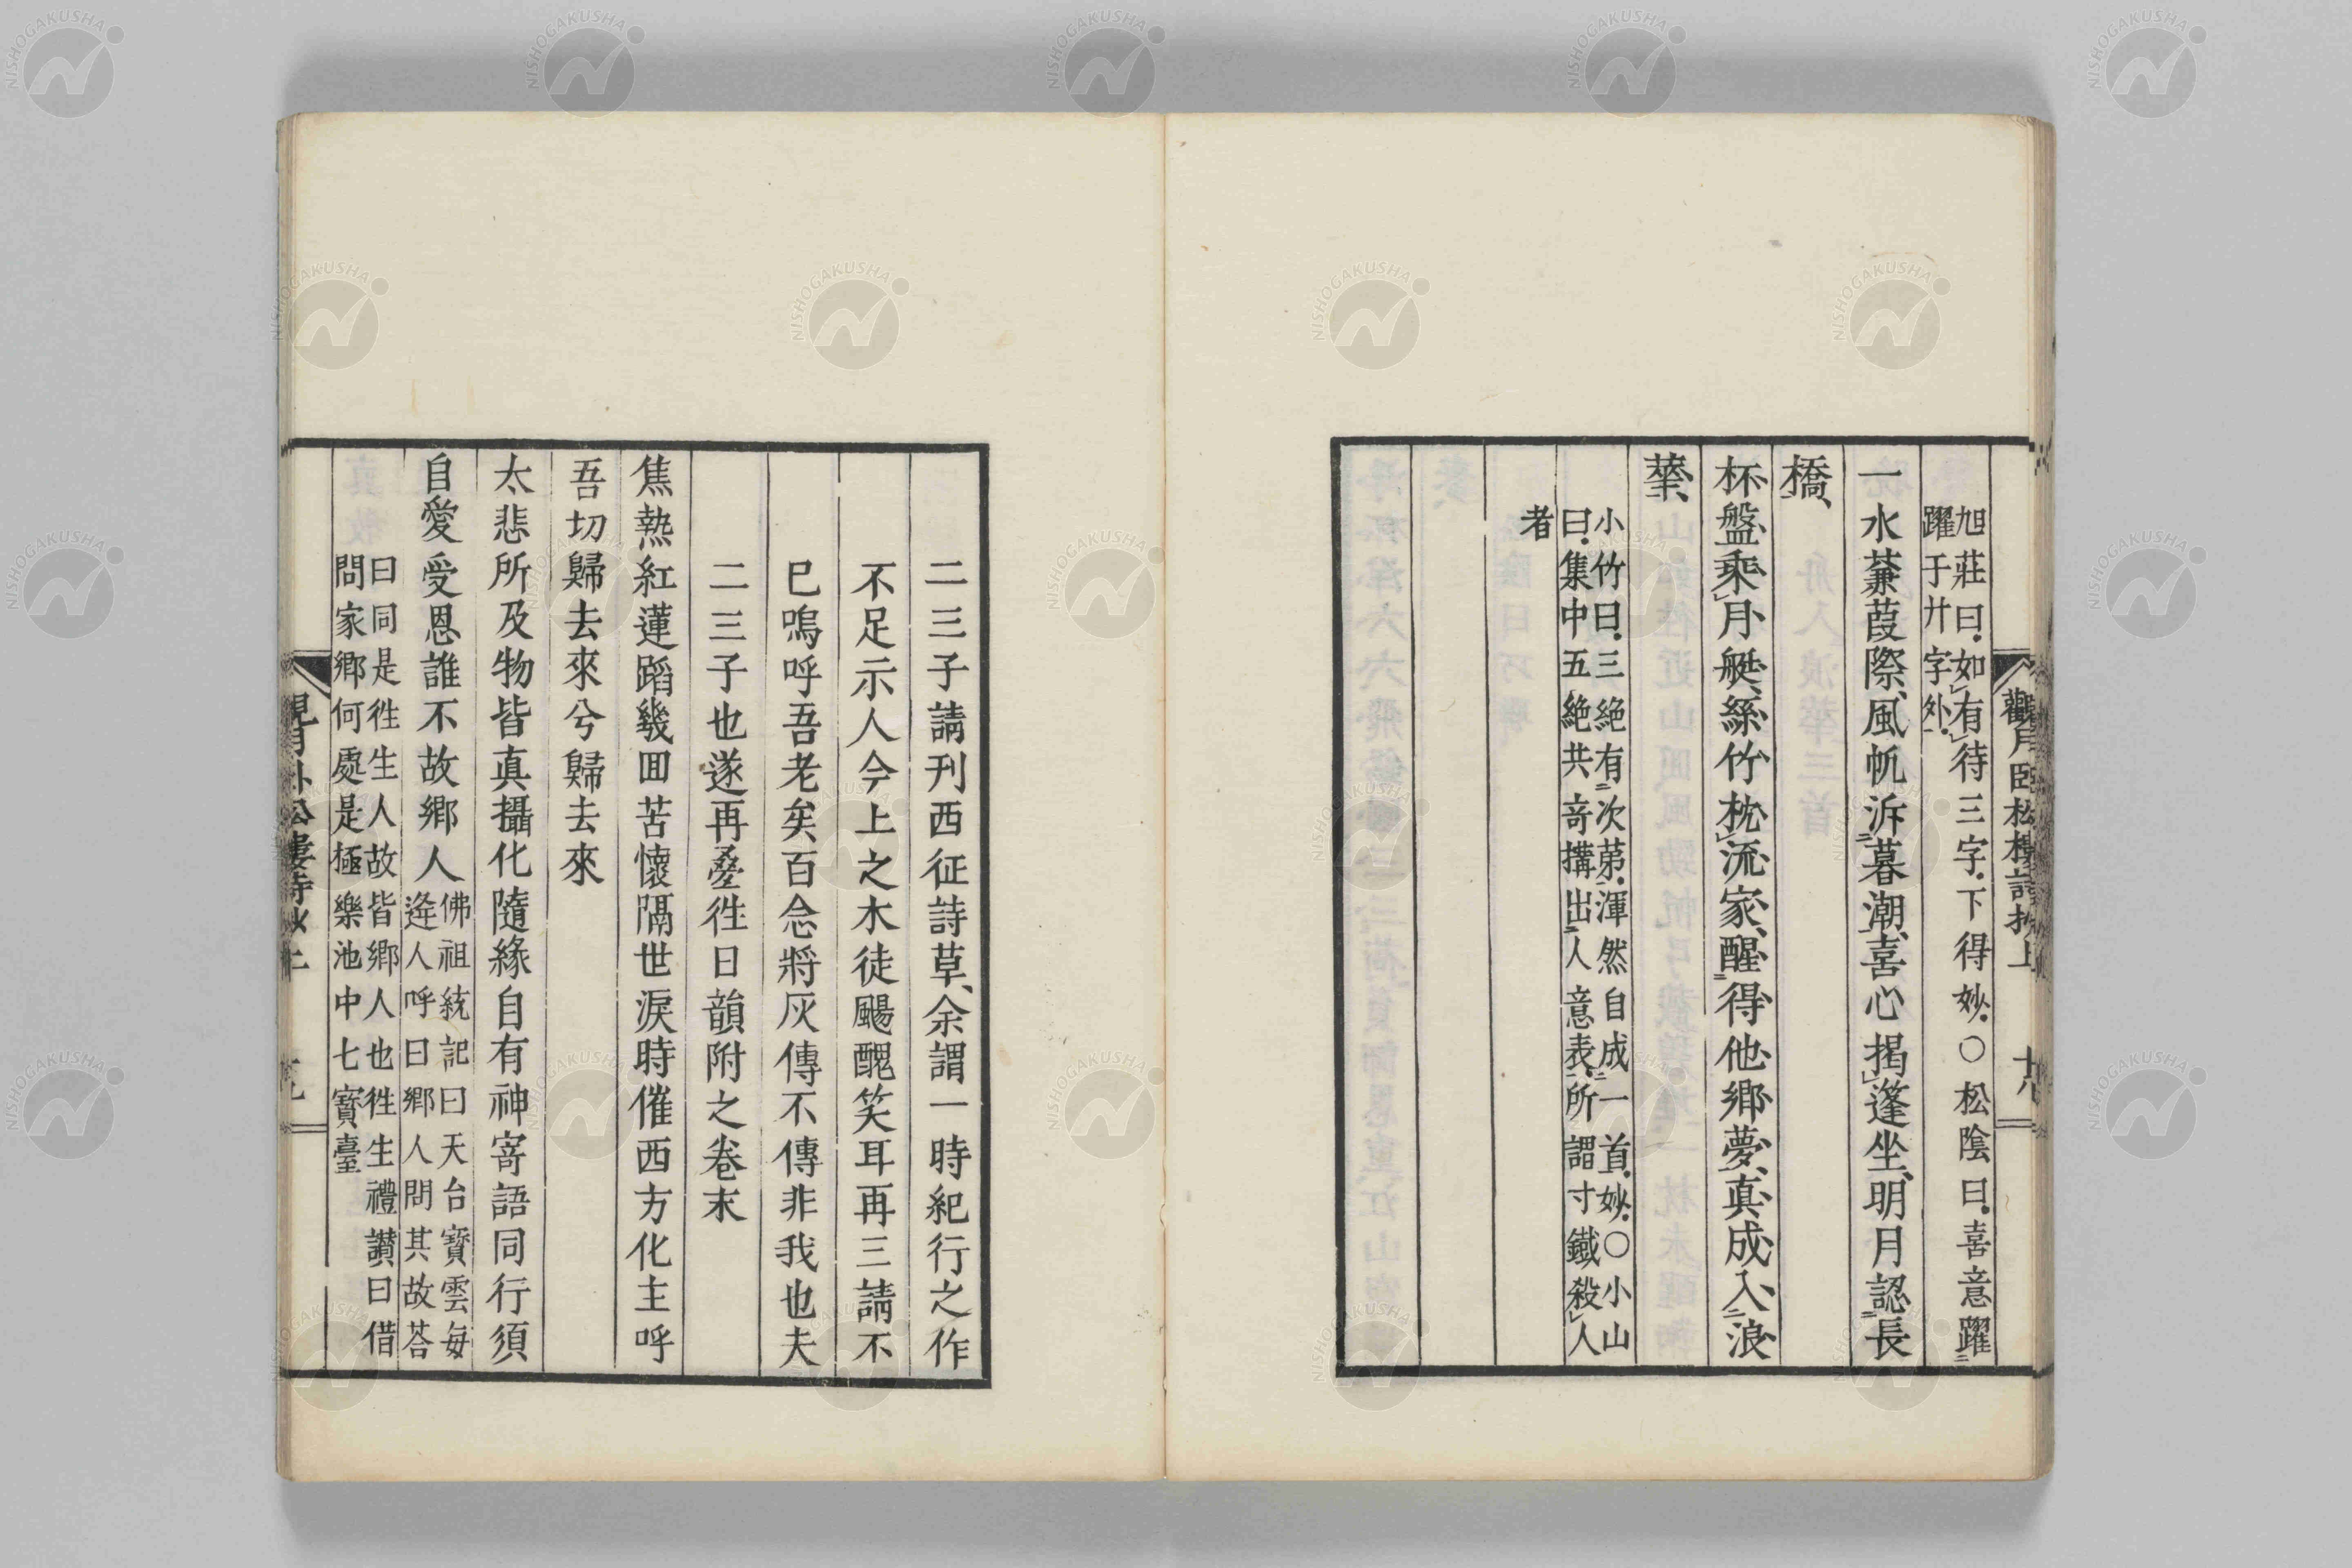 觀月臥松樓詩抄上 十八
旭莊曰如有待三字下得妙〇松陰曰喜意躍
躍于廾字外
一水蒹葭際風帆泝暮潮喜心揭蓬坐明月認長
橋
杯盤乘月艇絲竹枕流家醒得他鄉夢真成入浪
華
小竹曰三絕有次第渾然自成一首妙〇小山
曰集中五絕共竒搆出人意表所謂寸鐵殺人
者
二三子請刊西征詩草余謂一時紀行之作
不足示人今上之木徒颺醜笑耳再三請不
已嗚呼吾老矣百念將灰傳不傳非我也夫
二三子也遂再疊徃日韻附之卷末
焦熱紅蓮蹈幾回苦懷隔世淚時催西方化主呼
吾切歸去來兮歸去來
太悲所及物皆真攝化隨緣自有神寄語同行須
自愛受恩誰不故鄉人
佛祖統記曰天台寶雲每
逢人呼曰鄉人問其故荅
曰同是徃生人故皆鄉人也徃生禮讃曰借
問家鄉何處是極樂池中七寳臺